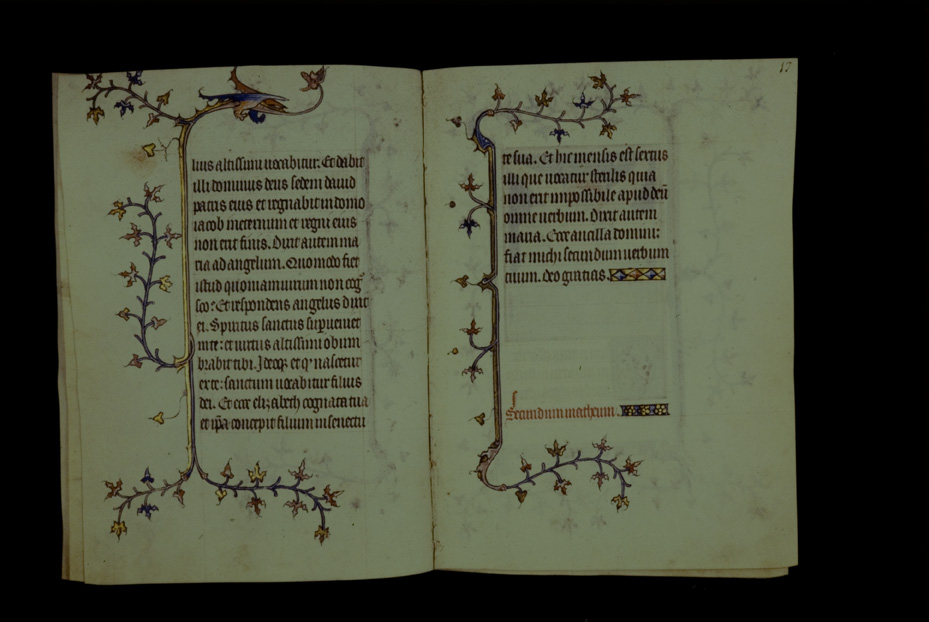 lius altissimi uocabitur. Et dabit
illi dominus deus sedem dauid
patris eius et regnabit in domo
iacob in eternum et regni eius
non erit finis. Dixit autem ma
ria ad angelum. Quomodo fiet
istud quoniam uirum non cog
sco? Et respondens angelus dixit
ei. Spiritus sanctus superueniet
in te: et uirtus altissimi obum
brabit tibi. Ideoqꝫ et qd nascetur
ex te: sanctum uocabitur filius
dei. Et ecce elizabeth cognata tua
et ip̄a concepit filium in senectu
17
te sua. Et hic mensis est sextus
illi que uocatur sterilis quia
non erit impossibile apud deū
omne uerbum. Dixit autem
maria. Ecce ancilla domini:
fiat michi secundum uerbum
tuum. deo gratias.
Secundum matheum